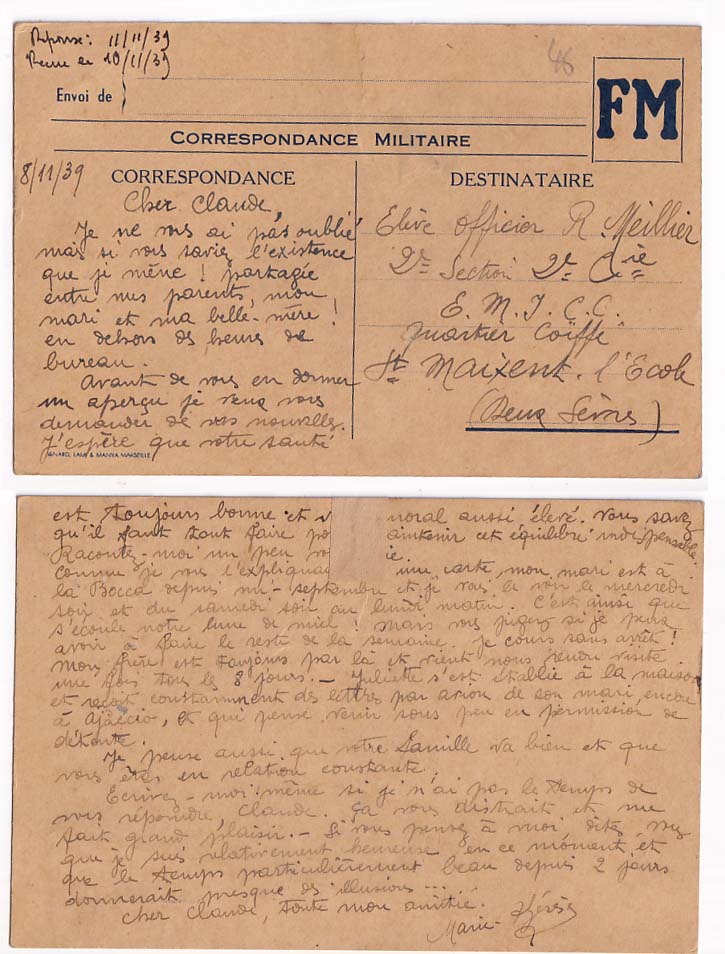 Réponse: 11/11/39
Reçue le 10/11/39
46
Envoi de
FM
CORRESPONDANCE MILITAIRE
8/11/39
CORRESPONDANCE
Cher Claude,
Je ne vous ai pas oublié
mais si vous saviez l'existence
que je mène ! partagée
entre mes parents, mon
mari et ma belle-mère !
en dehors des heures de
bureau.
Avant de vous en donner
un aperçu je veux vous
demander de vos nouvelles.
J'espère que votre santé
LAMY & MANYA MARSEILLE
DESTINATAIRE
Elève officier R. Meillier
2e Section 2e Cie
E. M. I. C. C.
Quartier Coiffé
St Maixent. l'Ecole
(Deux Sèvres)
est toujours bonne et v moral aussi élevé. Vous savez
qu'il faut tout faire po aintenir cet équilibre indispensable.
Raconte-moi un peu vo ie.
comme je vous l'expliquai une carte, mon mari est à
la Bocca depuis mi-septembre et je vais le voir le mercredi
soir et du samedi soir au lundi matin. C'est ainsi que
s'écoule notre lune de miel ! mais vous jugez si je peux
avoir à faire le reste de la semaine. Je cours sans arrêt !
Mon frère est toujours par là et vient nous rendre visite
une fois tous les 8 jours. - Juliette s'est établie à la maison
et reçoit constamment des lettres par avion de son mari, encore
à Ajaccio, et qui pense venir sous peu en permission de
détente.
Je pense aussi que votre famille va bien et que
vous êtes en relation constante.
Ecrivez-moi même si je n'ai pas le temps de
vous répondre, Claude. Ça vous distrait et me
fait grand plaisir. - Si vous pensez à moi, dites vous
que je suis relativement heureuse en ce moment et
que le temps particulièrement beau depuis 2 jours
donnerait presque des illusions ...
Cher Claude, toute mon amitié.
Marie-Thérèse